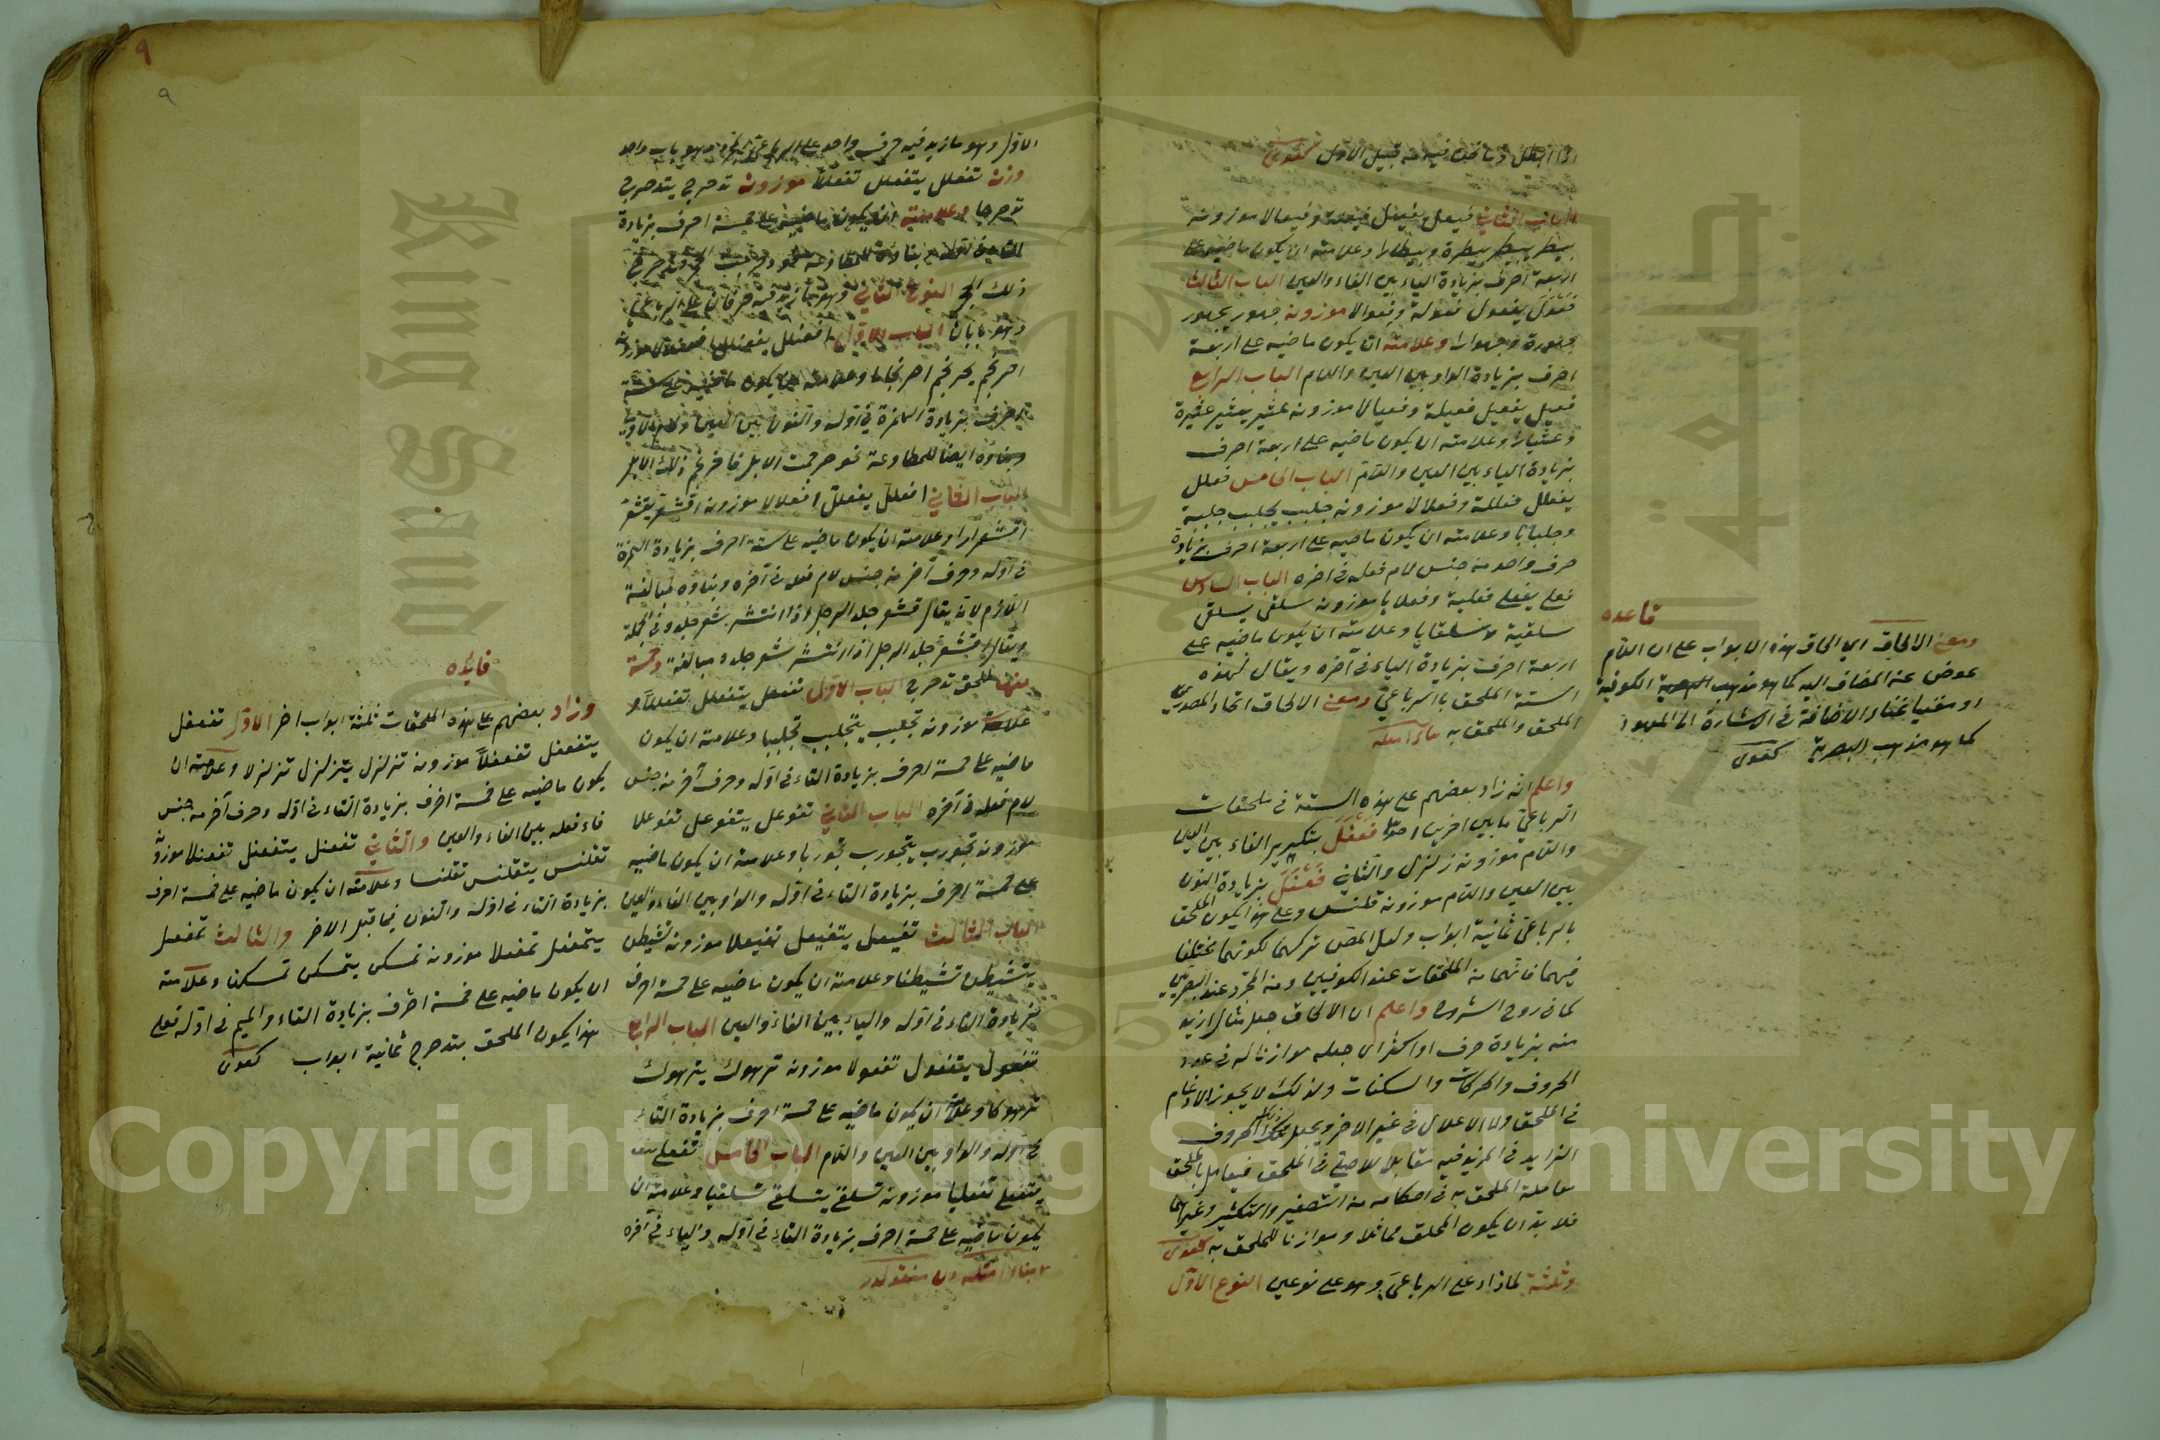 الباب الثاني فيعل يفيعل فيعلة وفيعالا موزونه
بيطر يبيطر بيطرة وبيطارا وعلامته ان يكون ماضيه على
اربعة احرف بزيادة الياء بين الفاء والعين الباب الثالث
فعول يفعول فعولة وفعوالا موزونه جهور يجهور
جهورة وجهوارا وعلامته ان يكون ماضيه على اربعة
احرف بزيادة الواو بين العين واللام الباب الرابع
فعيل يفعيل فعيلة وفعيالا موزونه عثير يعثير عثيرة
وعثيارا وعلامته ان يكون ماضيه على اربعة احرف
بزيادة الياء بين العين واللام الباب الخامس فعلل
يفعلل فعللة وفعلالا موزونه جلبب يجلبب جلببة
وجلبابا وعلامته ان يكون ماضيه على اربعة احرف بزيادة
حرف واحد من جنس لام فعله في اخره الباب السادس
فعلى يفعلي فعلية وفعلايا موزونه سلقى يسلقي
سلقية وسلقايا وعلامته ان يكون ماضيه على
اربعة احرف بزيادة الياء في آخره ويقال لهذه
الستة الملحق بالرباعي ومعنى الالحاق اتحاد المصدرين
الملحق والملحق به
واعلم انه زاد بعضهم على هذه الستة في ملحقات
الرباعي بابين اخرين احدهما فعفل بتكرير الفاء بين العين
واللام موزونه زلزل والثاني فعنل بزيادة النون
بين العين واللام موزونه قلنس وعلى هذا يكون الملحق
بالرباعي ثمانية ابواب ولعل المص تركهما لكونهما مختلفا
فيهما فانهما من الملحقات عند الكوفيين ومن المجرد عند البصريين
كما في روح الشروح واعلم ان الالحاق جعل مثال ازيد
منه بزيادة حرف او اكثر اي جعله موازنا له في عدد
الحروف والحركات والسكنات ولذلك لا يجوز الادغام
في الملحق ولا الاعلال في غير الاخر ويجعل ذلك الحروف
الزايد في المزيد فيه مقابلا للاصلي في الملحق فيعامل بالملحق
معاملة الملحق به في احكامه من التصغير والتكسير وغيرهما
فلا بد ان يكون الملحق مماثلا وموازنا للملحق به كفوى
وثلثة لما زاد على الرباعي وهو على نوعين النوع الاول
قاعده
ومعنى الالحاق اي الحاق هذه الابواب على ان اللام
عوض عن المضاف اليه كما هو مذهب الكوفية
كما هو مذهب البصرية كفوى
الاول وهو ما زيد فيه حرف واحد على الرباعي المجرد وهو باب واحد
وزنه تفعلل يتفعلل تفعللا موزونه تدحرج يتدحرج
تدحرجا وعلامته ان يكون ماضيه على خمسة احرف بزيادة
ذلك الحجر النوع الثاني وهو ما زيد فيه حرفان على الرباعي
وهو بابان الباب الاول افعنلل يفعنلل افعنلالا موزونه
احرنجم يحرنجم احرنجاما وعلامته ان يكون ماضيه على ستة
احرف بزيادة الهمزة في اوله والنون بين العين واللام الاولى
وبناؤه ايضا للمطاوعة نحو حرجمت الابل فاحرنجم ذلك الابل
الباب الثاني افعلل يفعلل افعلالا موزونه اقشعر يقشعر
اقشعرارا وعلامته ان يكون ماضيه على ستة احرف بزيادة الهمزة
في اوله وحرف آخر من جنس لام فعله في آخره وبناؤه مبالغة
اللازم لانه يقال قشعر جلد الرجل اذا انتشر شعر جلده في الجملة
ويقال اقشعر جلد الرجل اذا انتشر شعر جلده مبالغة وخمسة
منها لملحق تدحرج الباب الاول تفعلل يتفعلل تفعللا
موزونه تجلبب يتجلبب تجلببا وعلامته ان يكون
ماضيه على خمسة احرف بزيادة التاء في اوله وحرف آخر من جنس
لام فعله في آخره الباب الثاني تفوعل يتفوعل تفوعلا
موزونه تجورب يتجورب تجوربا وعلامته ان يكون ماضيه
على خمسة احرف بزيادة التاء في اوله والواو بين الفاء والعين
الباب الثالث تفيعل يتفيعل تفيعلا موزونه تشيطن
يتشيطن تشيطنا وعلامته ان يكون ماضيه على خمسة احرف
بزيادة التاء في اوله والياء بين الفاء والعين الباب الرابع
تفعول يتفعول تفعولا موزونه ترهوك يترهوك
ترهوكا وعلامته ان يكون ماضيه على خمسة احرف بزيادة التاء
في اوله والواو بين العين واللام الباب الخامس تفعلى
يتفعلى تفعليا موزونه تسلقى يتسلقى تسلقيا وعلامته ان
يكون ماضيه على خمسة احرف بزيادة التاء في اوله والياء في آخره
فائده
وزاد بعضهم على هذه الملحقات ثلثة ابواب اخر الاول تفعفل
يتفعفل تفعفلا موزونه تزلزل يتزلزل تزلزلا وعلامته ان
يكون ماضيه على خمسة احرف بزيادة التاء في اوله وحرف آخر من جنس
فاء فعله بين الفاء والعين والثاني تفعنل يتفعنل تفعنلا موزونه
تقلنس يتقلنس تقلنسا وعلامته ان يكون ماضيه على خمسة احرف
بزيادة التاء في اوله والنون فيما قبل الاخر والثالث تمفعل
يتمفعل تمفعلا موزونه تمسكن يتمسكن تمسكنا وعلامته
ان يكون ماضيه على خمسة احرف بزيادة التاء والميم في اوله فعلى
هذا يكون الملحق بتدحرج ثمانية ابواب كفوى
٩
٩
King Saud
1957
Copyright © King Saud University